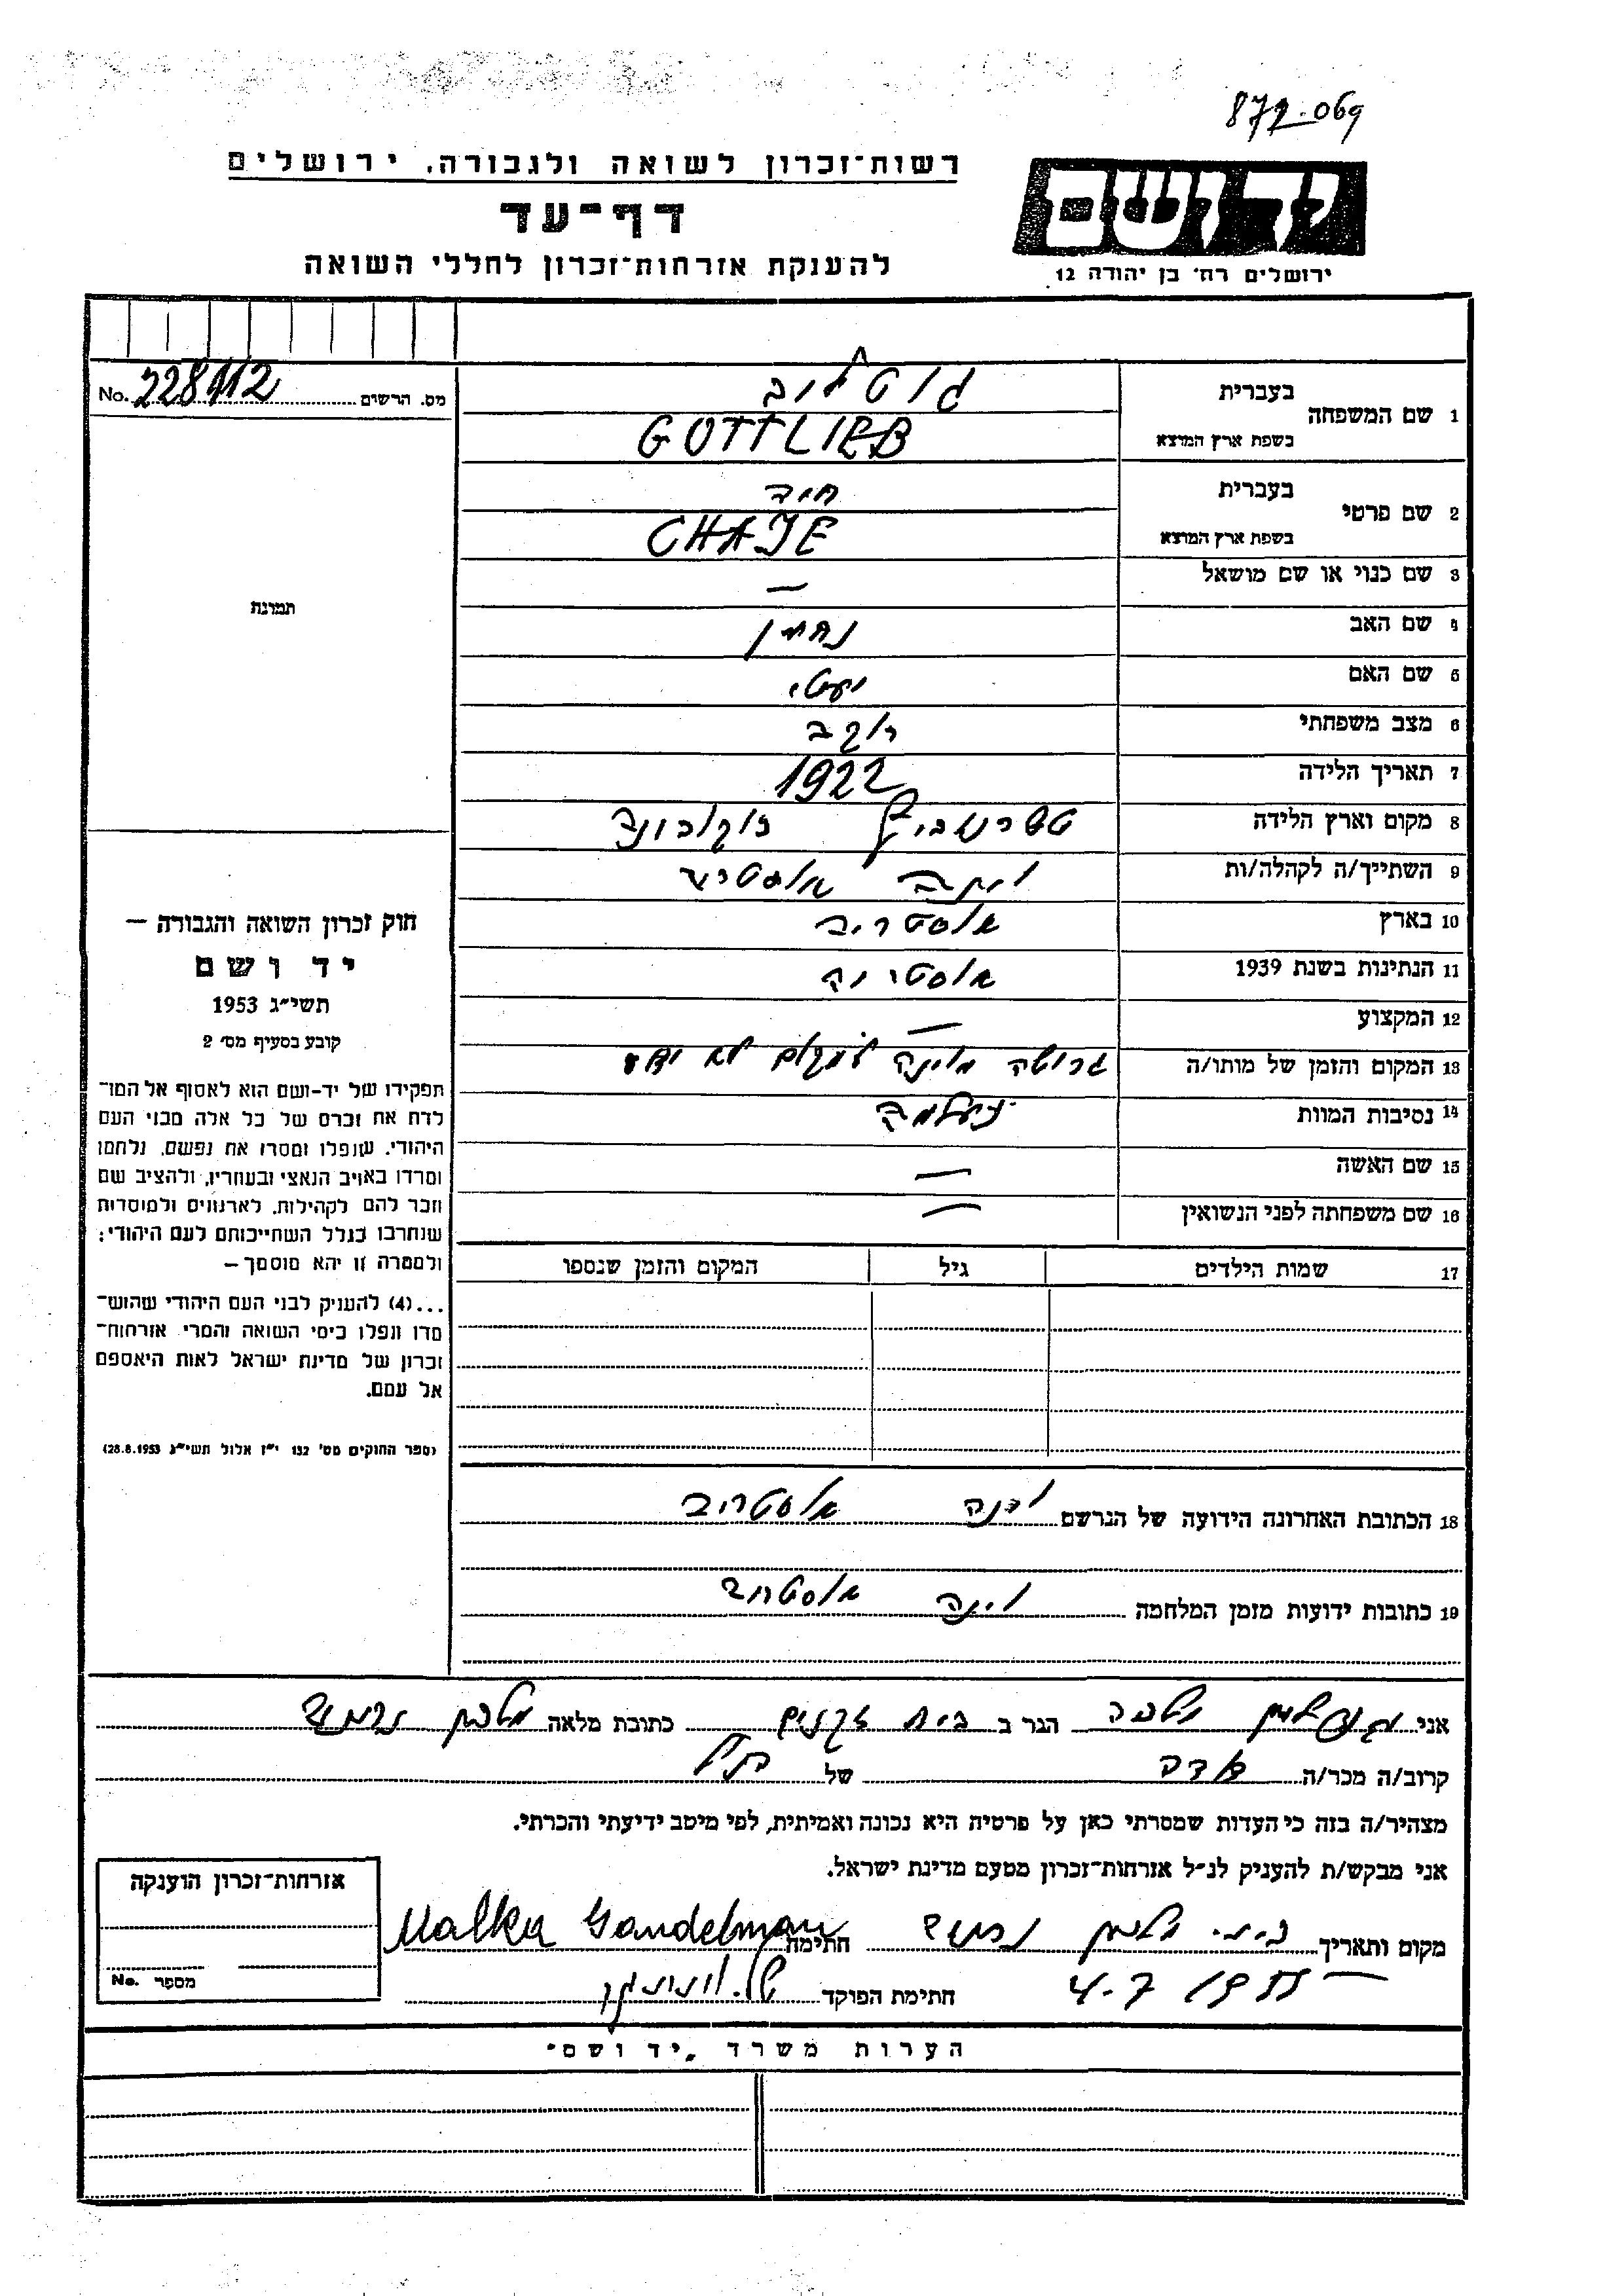 872.069
רשות־זכרון לשואה ולגבורה, ירושלים
יד ושם
דף־עד
להענקת אזרחות־זכרון לחללי השואה
ירושלים רח׳ בן יהודה 12
מס. הרשים No. 228112
1 שם המשפחה בעברית גוטליב
בשפת ארץ המוצא GOTTLIEB
2 שם פרטי בעברית חיה
בשפת ארץ המוצא CHAJE
3 שם כנוי או שם מושאל —
תמונת
4 שם האב נחמן
5 שם האם יעטי
6 מצב משפחתי רוק
7 תאריך הלידה 1922
8 מקום וארץ הלידה
9 השתייך/ה לקהלה/ות וינה אוסטריה
10 בארץ אוסטריה
11 הנתינות בשנת 1939 אוסטריה
12 המקצוע —
13 המקום והזמן של מותו/ה גרושה מוינה למקום לא ידוע
14 נסיבות המוות נעלמה
15 שם האשה —
16 שם משפחתה לפני הנשואין —
17 שמות הילדים גיל המקום והזמן שנספו
חוק זכרון השואה והגבורה —
יד ושם
תשי״ג 1953
קובע בסעיף מס׳ 2
תפקידו של יד-ושם הוא לאסוף אל המו־
לדת את זכרם של כל אלה מבני העם
היהודי, שנפלו ומסרו את נפשם, נלחמו
ומרדו באויב הנאצי ובעוזריו, ולהציב שם
וזכר להם לקהילות, לארגונים ולמוסדות
שנחרבו בגלל השתייכותם לעם היהודי;
ולמטרה זו יהא מוסמך —
...(4) להעניק לבני העם היהודי שהוש־
מדו ונפלו בימי השואה והמרי אזרחות־
זכרון של מדינת ישראל לאות היאספם
אל עמם.
(ספר החוקים מס׳ 132 י״ז אלול תשי״ג 28.8.1953)
18 הכתובת האחרונה הידועה של הנרשם וינה אוסטריה
19 כתובות ידועות מזמן המלחמה וינה אוסטריה
אני גנדלמן מלכה הגר ב בית זקנים כתובת מלאה
קרוב/ה מכר/ה של
מצהיר/ה בזה כי העדות שמסרתי כאן על פרטיה היא נכונה ואמיתית, לפי מיטב ידיעתי והכרתי.
אני מבקש/ת להעניק לנ״ל אזרחות־זכרון מטעם מדינת ישראל.
מקום ותאריך חתימה Malka Gandelman
4.7 1955 חתימת הפוקד
אזרחות־זכרון הוענקה
מספר No.
הערות משרד „יד ושם״